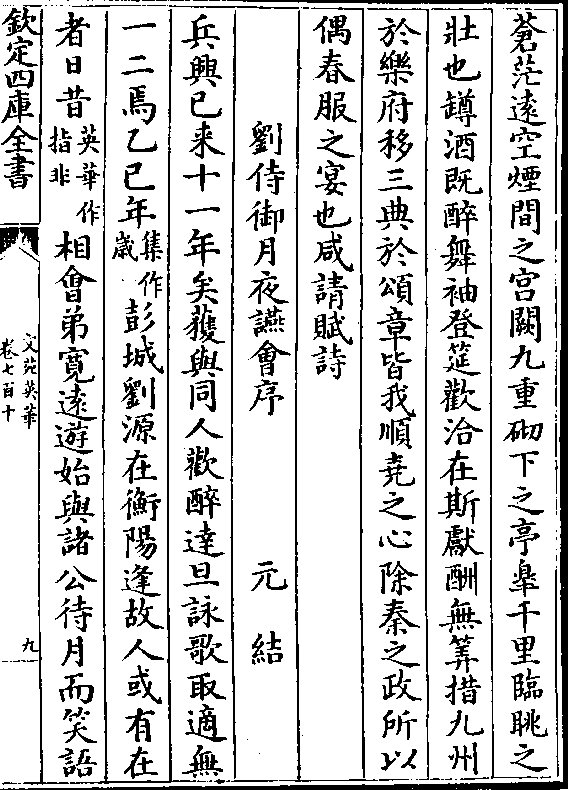 蒼茫逺空煙間之宫闕九重砌下之亭臯千里臨眺之
壮也罇酒既醉舞袖登筵歡洽在斯獻酬無筭措九州
於樂府移三典於頌章皆我順尭之心除秦之政所以
偶春服之宴也咸請賦詩
劉侍御月夜讌㑹序 元結
兵興已来十一年矣獲與同人歡醉達旦詠歌取適無
一二焉乙巳年集作歳彭城劉源在衡陽逢故人或有在
者日昔英華作指非相會弟寛逺遊始與諸公待月而笑語
欽定四庫全書
文苑英華
卷七百十
九